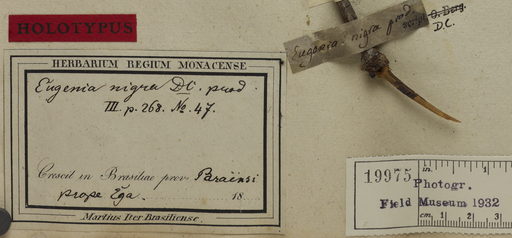 HOLOTYPUS
HERBARIUM REGIUM MONACENSE
Eugenia nigra DC. prod.
III. p. 268. No. 47.
Crescit in Brasiliae prov. Paraënsi
prope Ega. 18
Martius Iter Brasiliense.
Eugenia nigra prod
O. Berg.
D.C.
19975
Photogr.
Field Museum 1932
in. 1
cm. 1 2 3